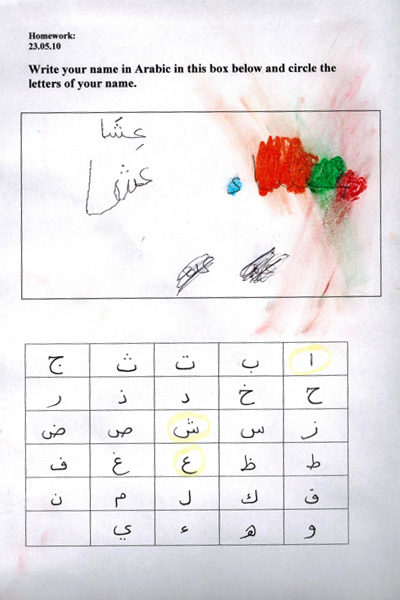 Homework:
23.05.10
Write your name in Arabic in this box below and circle the
letters of your name.
عِشَا
عشا
ا ب ت ث ج
ح خ د ذ ر
ز س ش ص ض
ط ظ ع غ ف
ق ك ل م ن
و ه ء ي